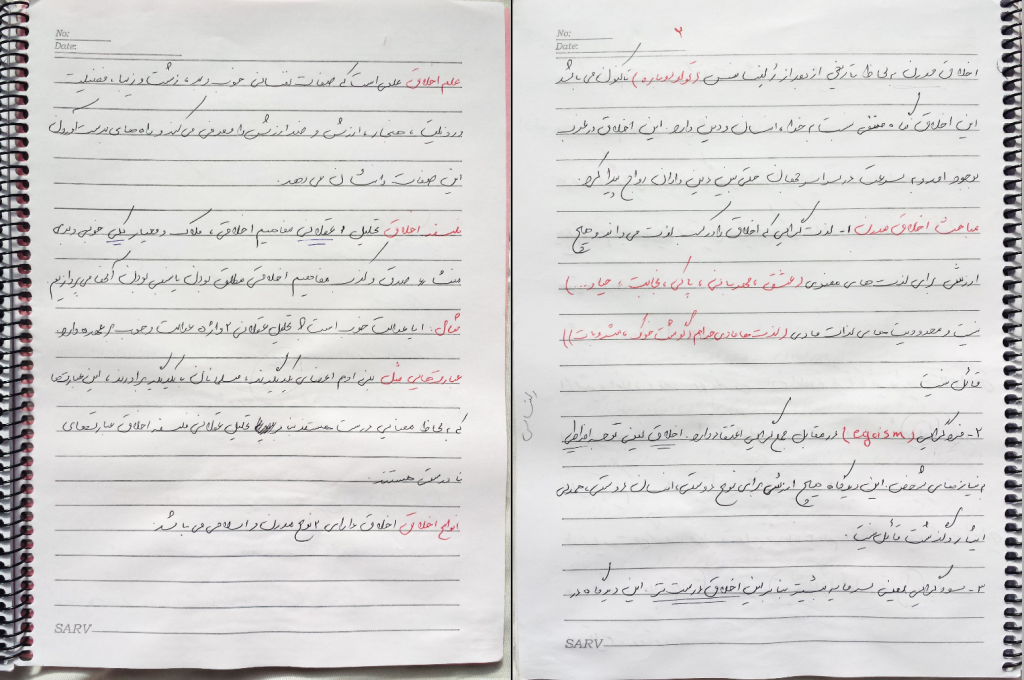 No:
Date:
علم اخلاق علمی است که صفات نفسانی خوب و بد، زشت و زیبا، فضیلت
و رذیلت، هنجار، ارزش و ضد ارزش را معرفی می کند و راه های بدست آوردن
این صفات را نشان می دهد.
فلسفه اخلاق تحلیل عقلانی مفاهیم اخلاقی، ملاک و معیار کلی خوبی و بدی
منشاء صدق و کذب مفاهیم اخلاقی مطلق بودن یا نسبی بودن آنها می پردازیم.
مثال: ایا عدالت خوب است؟ تحلیل عقلانی ۲ واژه عدالت و خوب بر عهده دارد
عبارت هایی مثل بنی ادم اعضای یکدیگرند، مسلمانان یکدیگر برادرند، این عبارت ها
که به لحاظ معنایی درست هستند بنابر تحلیل عقلانی فلسفه اخلاق عبارت های
نادرستی هستند.
انواع اخلاق اخلاق دارای ۲ نوع مدرن و اسلامی می باشد.
SARV
No:
۲
Date:
اخلاق مدرن به لحاظ تاریخی از بعد از رنسانس (تولد دوباره) تاکنون می باشد
این اخلاق نگاه منفی نسبت به خدا، انسان و دین دارد. این اخلاق در غرب
بوجود امد و به سرعت در سراسر جهان حتی بین دین داران رواج پیدا کرد.
مباحث اخلاق مدرن ۱- لذت گرایی که اخلاق را در کسب لذت می داند و هیچ
ارزشی برای لذت های معنوی (عشق، مهربانی، پاکی، نجابت، حیا و...)
نیست و محدودیت های لذات مادی (لذت های مادی حرام (گوشت خوک، مشروبات))
قائل نیست
رنسانس
۲- فردگرایی (egoism) در مقابل جمع گرایی اعتقاد دارد. اخلاق یعنی توجه افراطی
به نیازهای شخص. این دیدگاه هیچ ارزشی برای نوع دوستی، انسان دوستی، همدلی
ایثار و گذشت قائل نیست.
۳- سودگرایی یعنی سرمایه بیشتر بنابراین اخلاق درست تر. این دیدگاه در
SARV